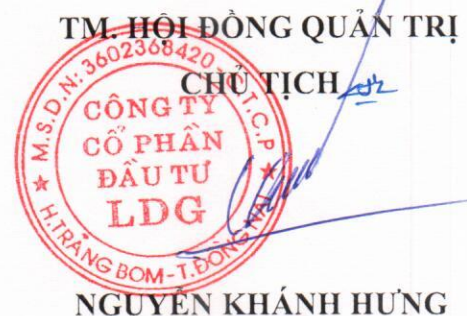 TM. HỘI ĐỒNG QUẢN TRỊ
CHỦ TỊCH
M.S.D.N: 3602368420 - C.T.C.P
CÔNG TY
CỔ PHẦN
ĐẦU TƯ
LDG
H.TRẢNG BOM - T.ĐỒNG NAI
NGUYỄN KHÁNH HƯNG